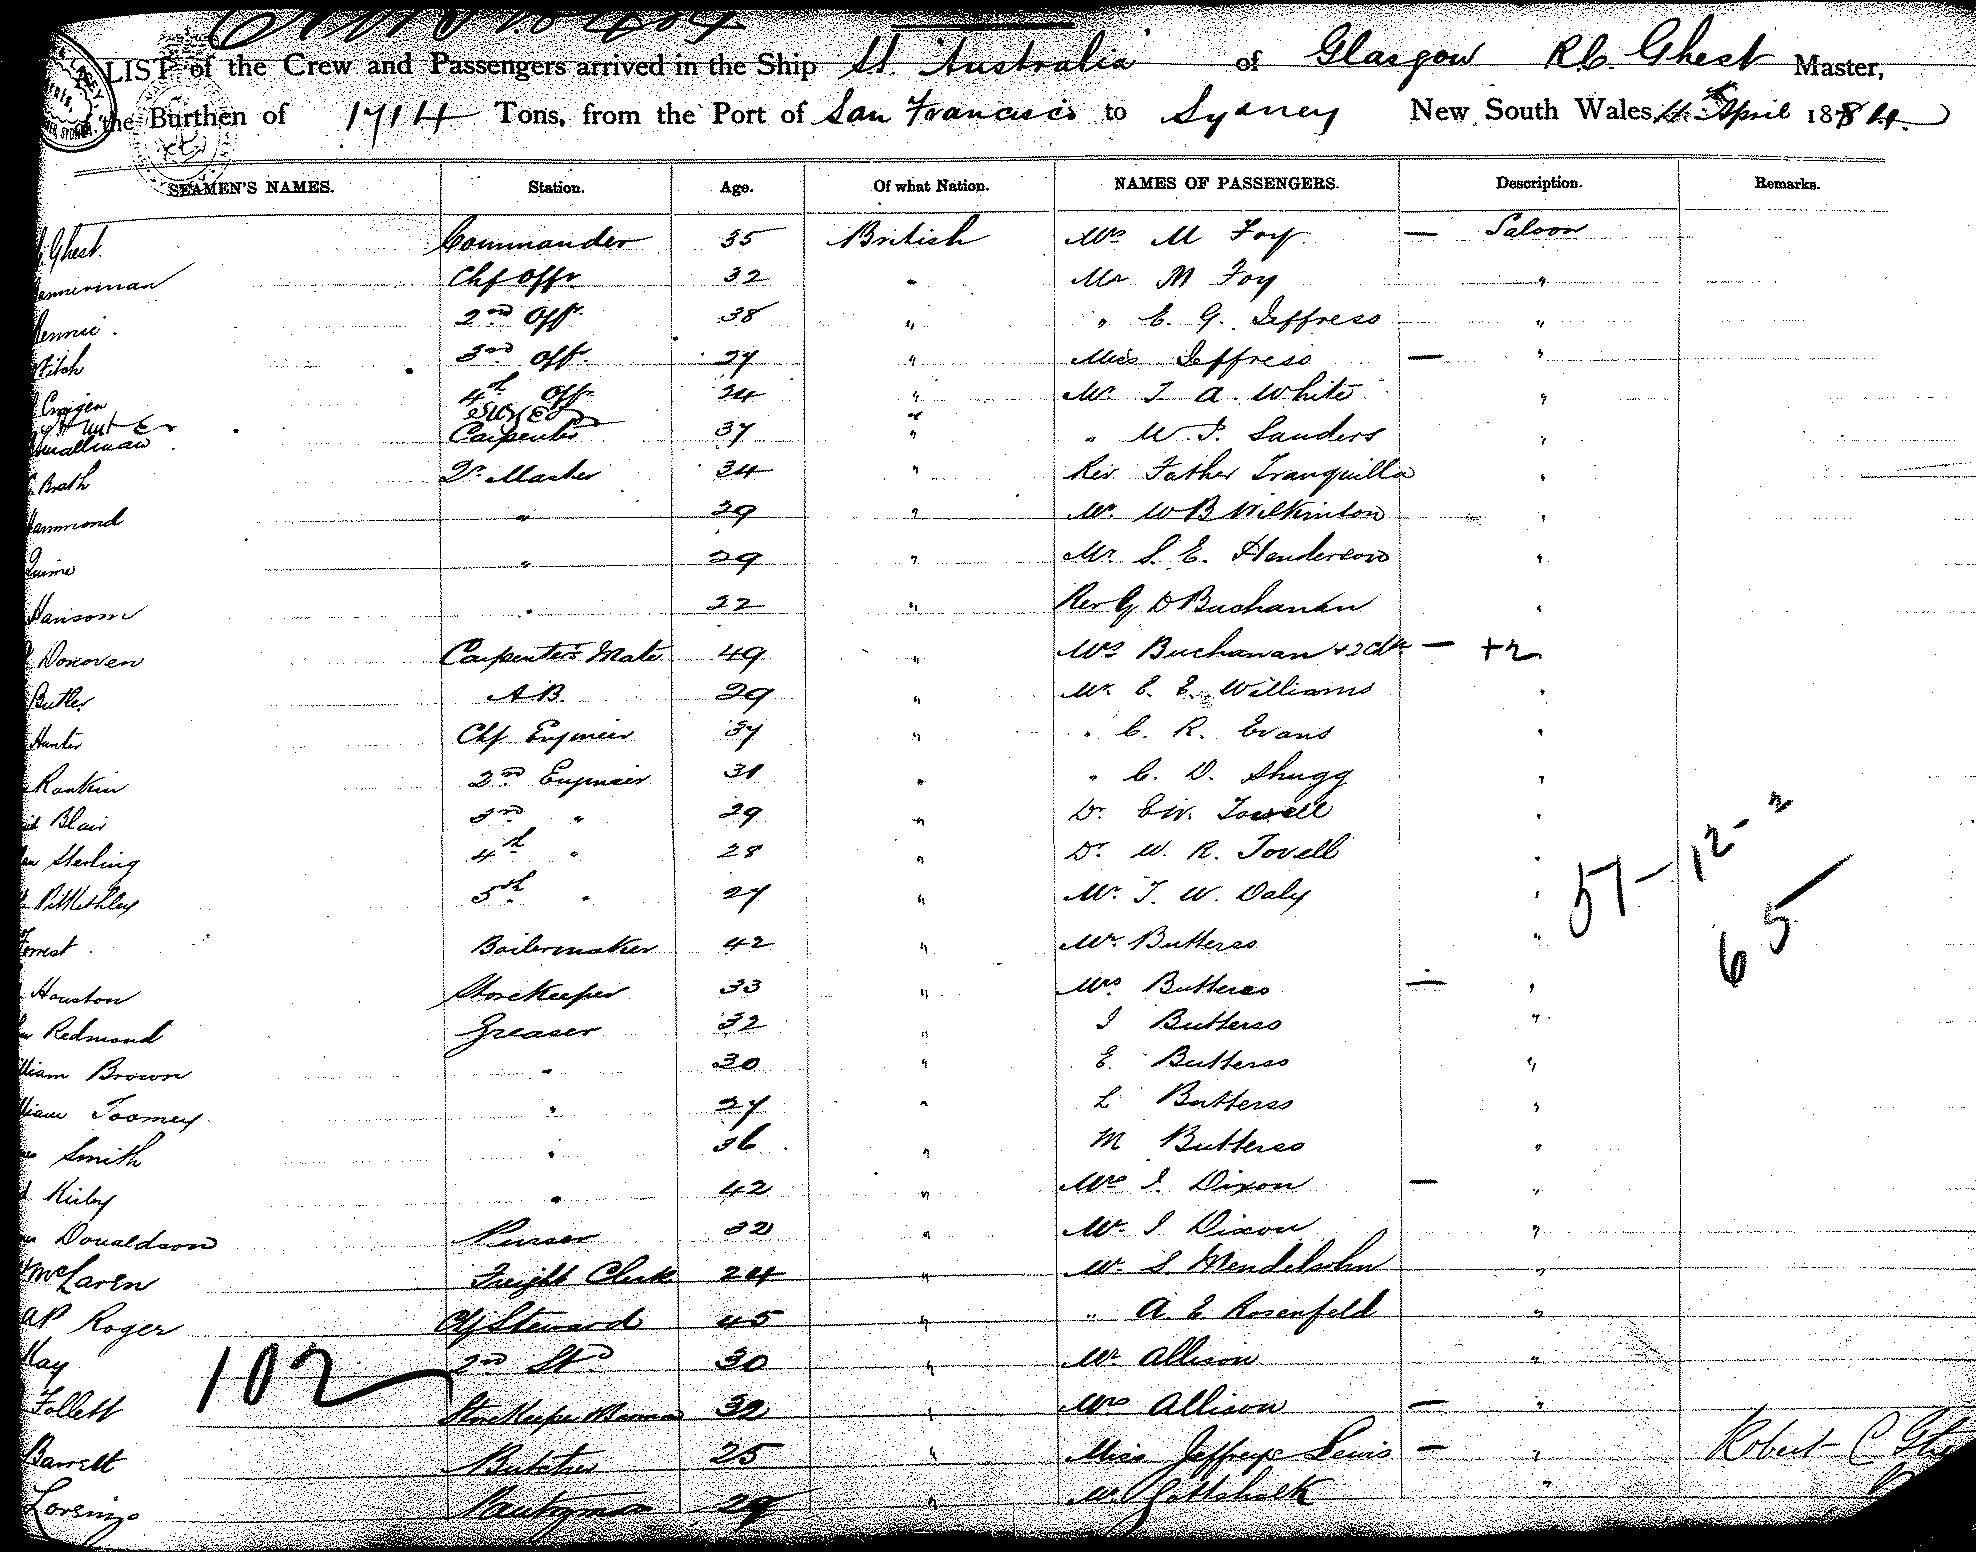 LIST of the Crew and Passengers arrived in the Ship St. "Australia" of Glasgow R C. Ghest Master,
the Burthen of 1714 Tons, from the Port of San Francisco to Sydney New South Wales, April 1884
SEAMEN'S NAMES. Station. Age. Of what Nation. NAMES OF PASSENGERS. Description. Remarks.
Ghest. Commander 35 British Mrs M Foy — Saloon
Chf Offr 32 " Mr M Foy "
Rennie. 2nd Off. 38 " " E. G. Jeffress "
3rd Off. 27 " Miss Jeffress — "
4th Off. 24 " Mr. T A. White "
Hunter
Smallman Carpenter 37 " " W. J. Sanders "
Qr Master 34 " Rev Father Tranquilla "
Hammond " 29 " Mr. W B Wilkinson "
" 29 " Mr. S. E. Henderson "
Hansom " 22 " Rev G D Buchanan "
Donoven Carpenters Mate 49 " Mrs Buchanan +2 — +2
Butler A B. 29 " Mr. C. E. Williams "
Hunter Chf Engineer 37 " " C. R. Evans "
Rankin 2nd Engineer 31 " " C. D. Shugg "
Blair 3rd " 29 " Dr. Tovell "
Sterling 4th " 28 " Dr. W. R. Tovell "
5th " 27 " Mr. T. W. Daly "
Forrest Boilermaker 42 " Mr. Butterss "
57 - 12 - "
65
Houston StoreKeeper 33 " Mrs Butterss — "
Redmond Greaser 32 " J Butterss "
William Brown " 30 " E. Butterss "
William Toomey " 27 " L Butterss "
Smith " 36 " M Butterss "
Kirby " 42 " Mrs J. Dixon — "
Donaldson Purser 32 " Mr. J Dixon "
McLaren Freight Clerk 24 " Mr. S. Mendelsohn "
Roger Chf Steward 45 " " A. E Rosenfeld "
May 2nd Std 30 " Mr Allison "
102
Follett StoreKeeper 32 " Mrs Allison — "
Barrett Butcher 25 " Miss Jeffrys Lewis — " Robert C
Lorsing Pantryman 29 " Mr. Gottshalk "